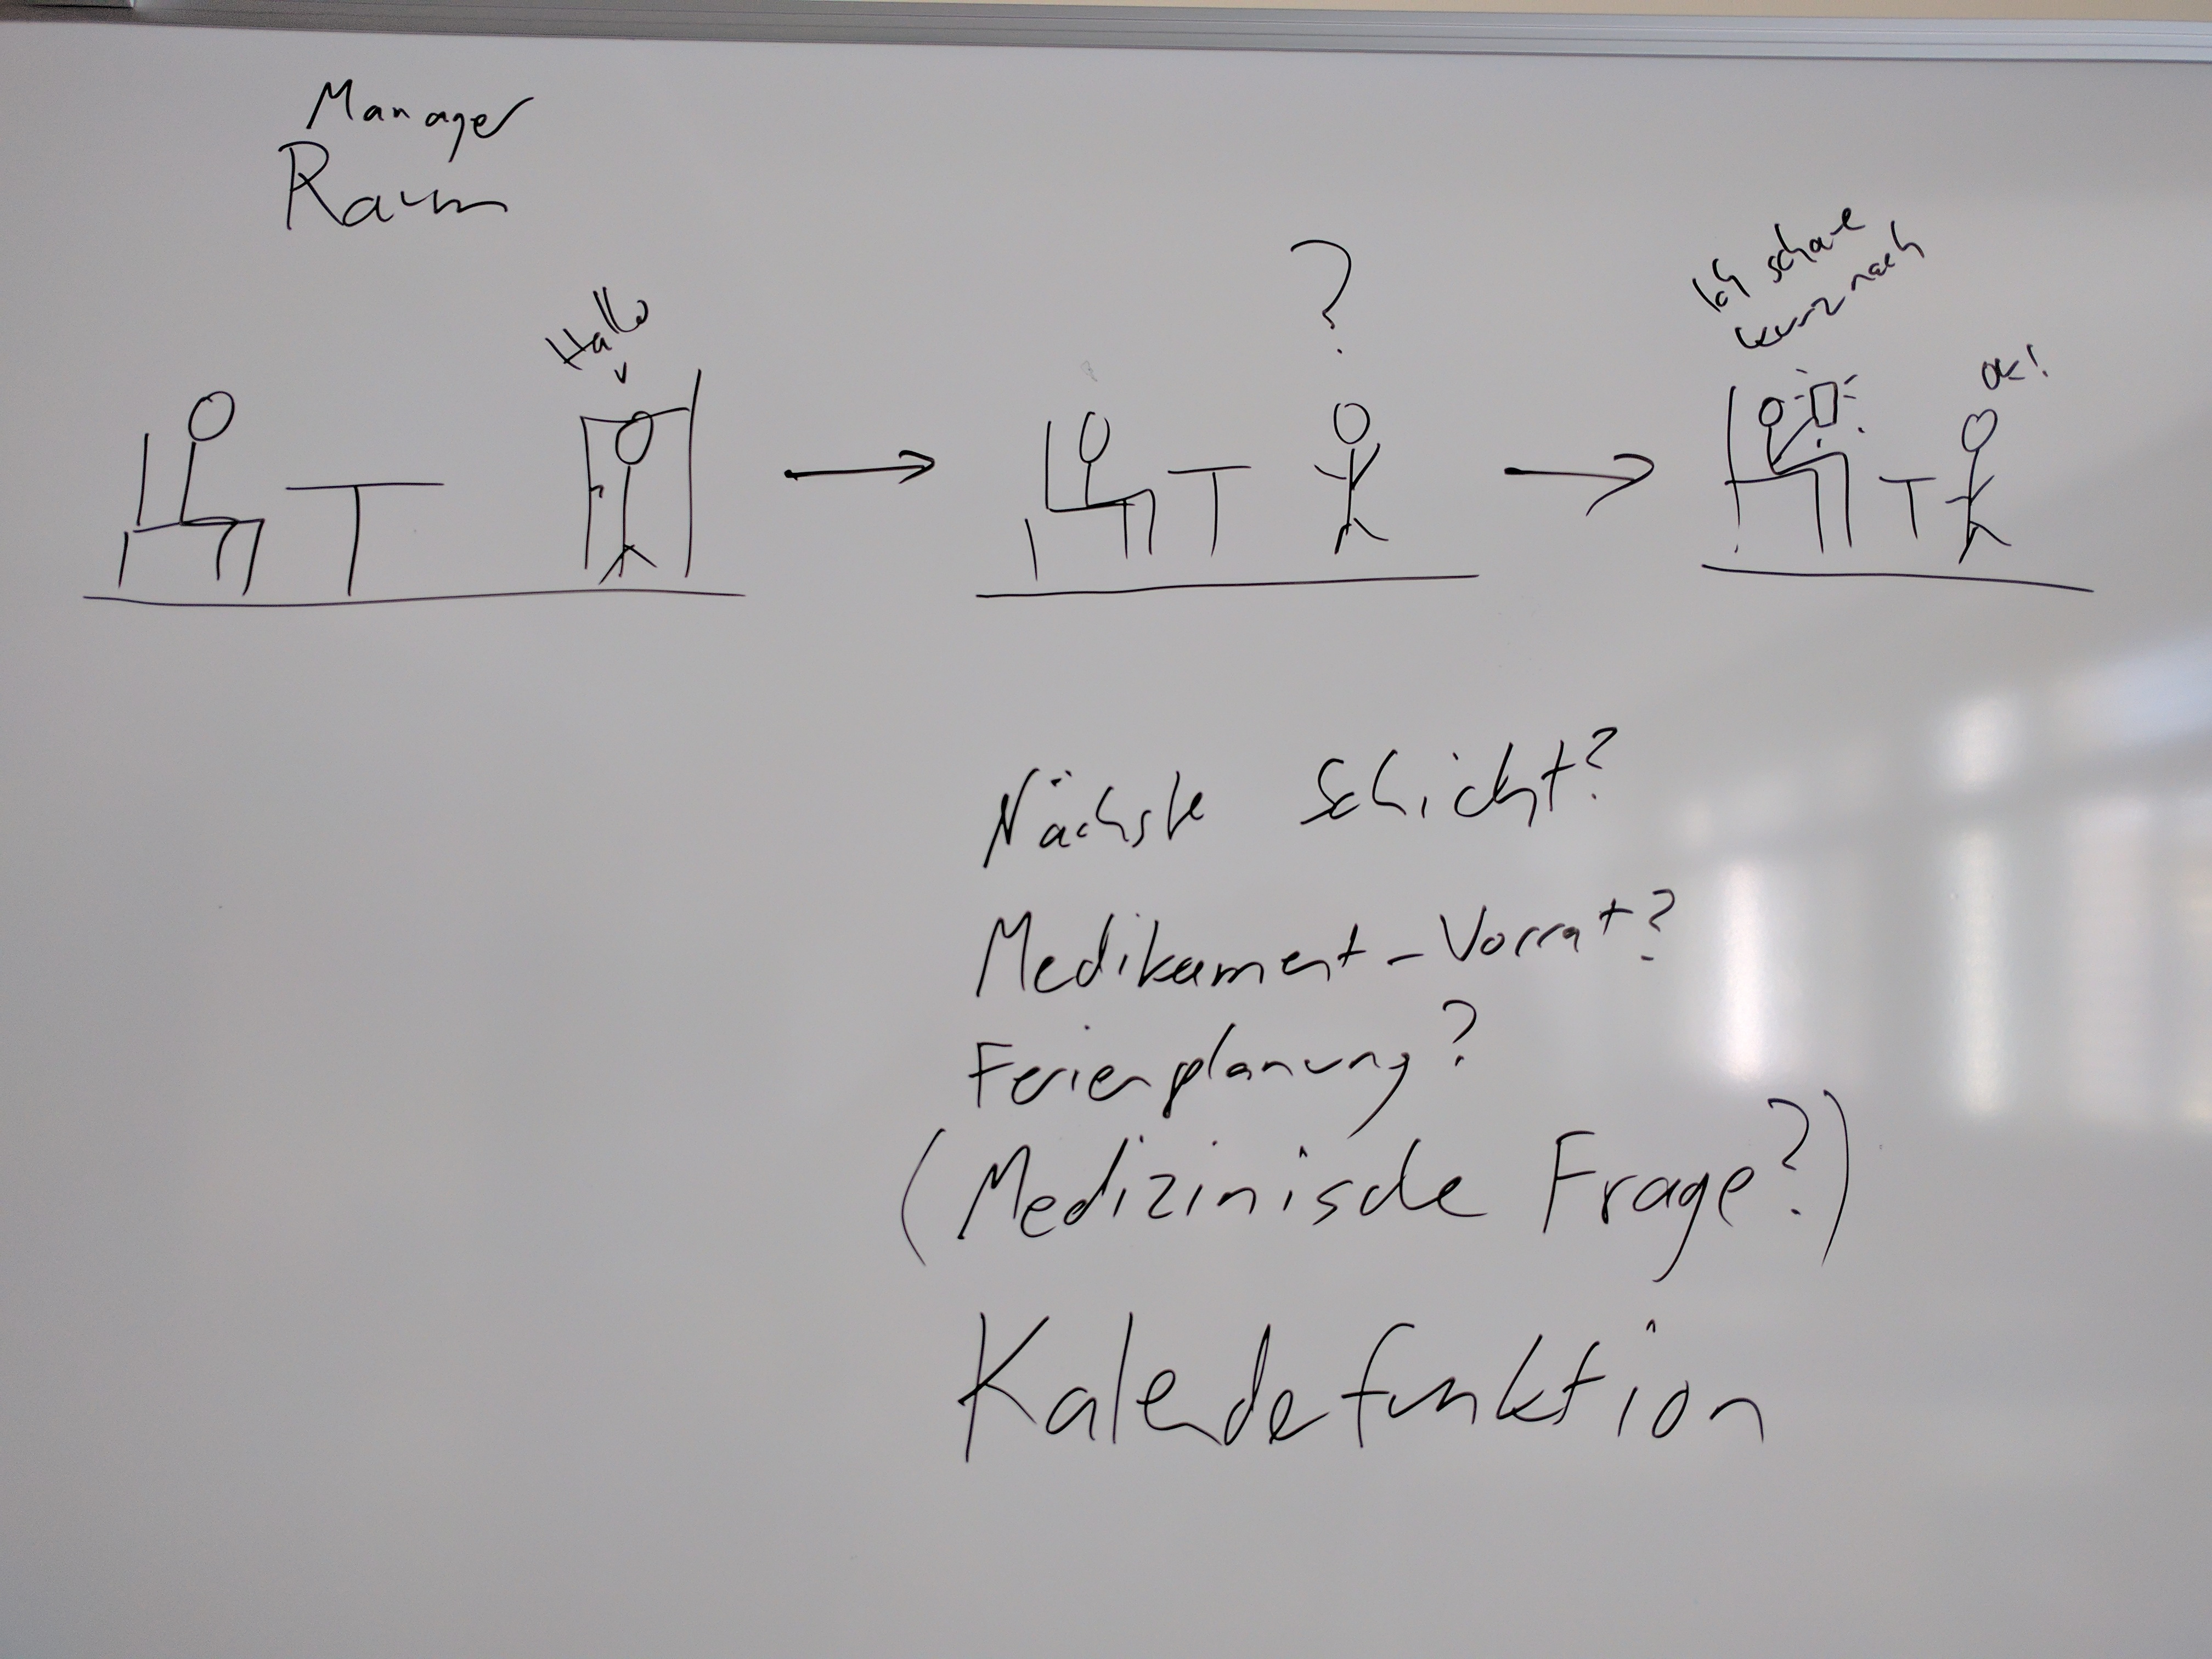 Manager
Raum
Hallo
?
Ich schaue
kurz nach
OK!
Nächste Schicht?
Medikament-Vorrat?
Ferienplanung?
(Medizinische Frage?)
Kalenderfunktion